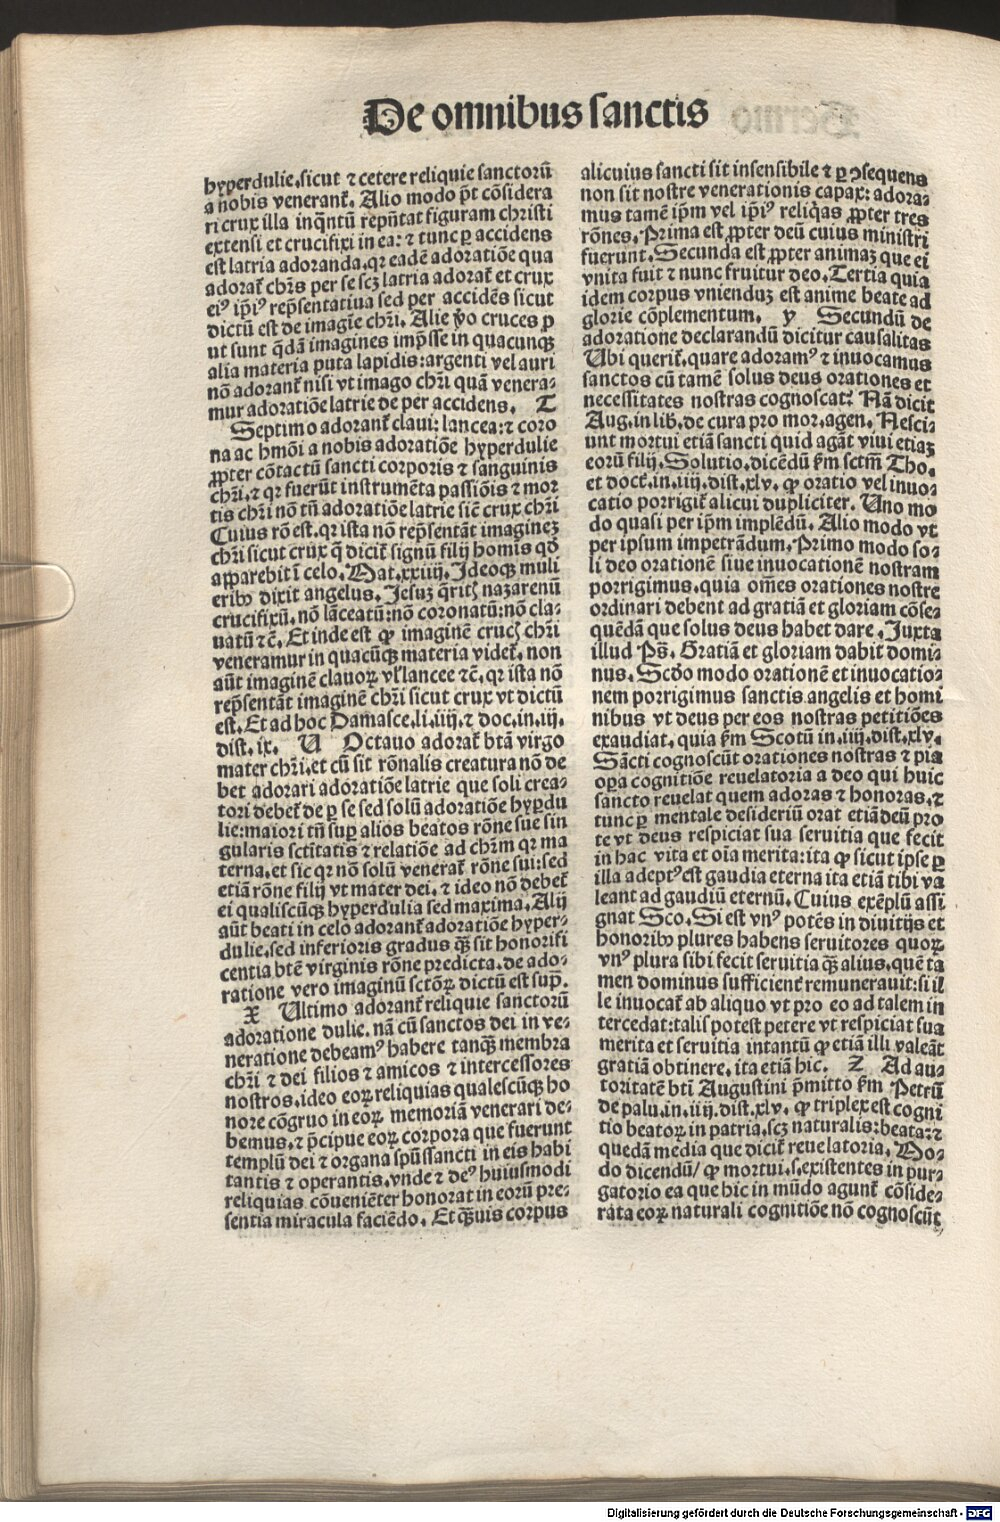 De omnibus sanctis
hyperdulie.sicut ⁊ cetere reliquie sanctorū
a nobis venerant᷑. Alio modo p̄t cōsidera
ri crux illa inq̄ntū rep̄ntat figuram christi
extensi et crucifixi in ea: ⁊ tunc ꝑ accidens
est latria adoranda.qꝛ eadē adoratiōe qua
adorat᷑ chr̄s per se scꝫ latria adorat᷑ et crux
eiꝰ ip̄iꝰ rep̄sentatiua sed per accidēs sicut
dictū est de imagīe chr̄i. Alie ꝟo cruces p
ut sunt q̄dā imagines imp̄sse in quacunqꝫ
alia materia puta lapidis:argenti vel auri
nō adorant᷑ nisi vt imago chr̄i quā venera⸗
mur adoratiōe latrie de per accidens. T
Septimo adorant᷑ claui: lancea:⁊ coro
na ac hmōi a nobis adoratiōe hyperdulie
ꝓpter cōtactū sancti corporis ⁊ sanguinis
chr̄i.⁊ qꝛ fuerūt instrumēta passiōis ⁊ mor
tis chr̄i nō tn̄ adoratiōe latrie sic̄ crux chr̄i
Cuius rō est.qꝛ ista nō rep̄sentāt imaginēꝫ
chr̄i sicut crux q̄ dicit᷑ signū filij homis qd̄
apparebit ī celo.Mat.xxiiij.Ideoqꝫ muli
eribꝰ dixit angelus.Jesuꝫ q̄ritꝭ nazarenū
crucifixū.nō lāceatū:nō coronatū:nō cla⸗
uatū ⁊c̄. Et inde est ꝙ imaginē crucꝭ chr̄i
veneramur in quacūqꝫ materia videt᷑. non
aūt imaginē clauoꝝ vl̓ lancee ⁊c̄.qꝛ ista nō
rep̄sentāt imaginē chr̄i sicut crux vt dictū
est.Et ad hoc Damasce.li.iiij.⁊ doc.in.iij.
dist.ix. V Octauo adorat᷑ btā virgo
mater chr̄i.et cū sit rōnalis creatura nō de
bet adorari adoratiōe latrie que soli crea⸗
tori debet᷑ de ꝑ se sed solū adoratiōe hyꝑdu
lie:maiori tn̄ suꝑ alios beatos rōne sue sin
gularis sctītatis ⁊ relatiōe ad chr̄m qꝛ ma
terna.et sic qꝛ nō solū venerat᷑ rōne sui:sed
etiā rōne filij vt mater dei.⁊ ideo nō debet᷑
ei qualiscūqꝫ hyperdulia sed maxima.Alij
aūt beati in celo adorant᷑ adoratiōe hyper⸗
dulie.sed inferioris gradus qꝫ̄ sit honorifi
centia btē virginis rōne predicta.de ado⸗
ratione vero imaginū sctōꝝ dictū est sup̄.
X Ultimo adorant᷑ reliquie sanctorū
adoratione dulie. nā cū sanctos dei in ve⸗
neratione debeamꝰ habere tanqꝫ̄ membra
chr̄i ⁊ dei filios ⁊ amicos ⁊ intercessores
nostros.ideo eoꝝ reliquias qualescūqꝫ ho
nore cōgruo in eoꝝ memoriā venerari de⸗
bemus.⁊ p̄cipue eoꝝ corpora que fuerunt
templū dei ⁊ organa spūssancti in eis habi
tantis ⁊ operantis.vnde ⁊ deꝰ huiusmodi
reliquias cōueniēter honorat in eorū pre⸗
sentia miracula faciēdo. Et qꝫ̄uis corpus
alicuius sancti sit insensibile ⁊ ꝑ ꝯsequens
non sit nostre venerationis capax: adora⸗
mus tamē ip̄m vel ip̄iꝰ reliq̄as ꝓpter tres
rōnes.Prima est ꝓpter deū cuius ministri
fuerunt.Secunda est ꝓpter animaꝫ que ei
vnita fuit ⁊ nunc fruitur deo.Tertia quia
idem corpus vniendum est anime beate ad
glorie cōplementum. y Secundū de
adoratione declarandū dicitur causalitas
Ubi querit᷑.quare adoramꝰ ⁊ inuocamus
sanctos cū tamē solus deus orationes et
necessitates nostras cognoscat? Nā dicit
Aug.in lib.de cura pro mor.agen. Nesci⸗
unt mortui etiā sancti quid agāt viui etiaꝫ
eorū filij.Solutio.dicēdū s̄m sctm̄ Tho.
et doct᷑.in.iiij.dist.xlv. ꝙ oratio vel inuo⸗
catio porrigit᷑ alicui dupliciter. Uno mo
do quasi per ip̄m implēdū. Alio modo vt
per ipsum impetrādum.Primo modo so⸗
li deo orationē siue inuocationē nostram
porrigimus.quia om̄es orationes nostre
ordinari debent ad gratiā et gloriam cōse⸗
quēdā que solus deus habet dare.Juxta
illud Ps̄. Gratiā et gloriam dabit domi⸗
nus.Scd̄o modo orationē et inuocatio⸗
nem porrigimus sanctis angelis et homi
nibus vt deus per eos nostras petitiōes
exaudiat.quia s̄m Scotū in.iiij.dist.xlv.
Sācti cognoscūt orationes nostras ⁊ pia
oꝑa cognitiōe reuelatoria a deo qui huic
sancto reuelat quem adoras ⁊ honoras.⁊
tunc ꝑ mentale desideriū orat etiā deū pro
te vt deus respiciat sua seruitia que fecit
in hac vita et oīa merita:ita ꝙ sicut ipse ꝑ
illa adeptꝰ est gaudia eterna ita etiā tibi va
leant ad gaudiū eternū.Cuius exēplū assi
gnat Sco.Si est vnꝰ potēs in diuitijs et
honoribꝰ plures habens seruitores quoꝝ
vnꝰ plura sibi fecit seruitia qꝫ̄ alius.quē ta
men dominus sufficient᷑ remunerauit:si il
le inuocat᷑ ab aliquo vt pro eo ad talem in
tercedat:talis potest petere vt respiciat sua
merita et seruitia intantū ꝙ etiā illi valeāt
gratiā obtinere.ita etiā hic. Z Ad au⸗
toritatē btī Augustini p̄mitto s̄m Petrū
de palu.in.iiij.dist.xlv. ꝙ triplex est cogni
tio beatoꝝ in patria.scꝫ naturalis:beata:⁊
quedā media que dicit᷑ reuelatoria. Mo⸗
do dicendū/ ꝙ mortui.s.existentes in pur⸗
gatorio ea que hic in mūdo agunt᷑ cōside⸗
rata eoꝝ naturali cognitiōe nō cognoscūt
Digitalisierung gefördert durch die Deutsche Forschungsgemeinschaft - DFG